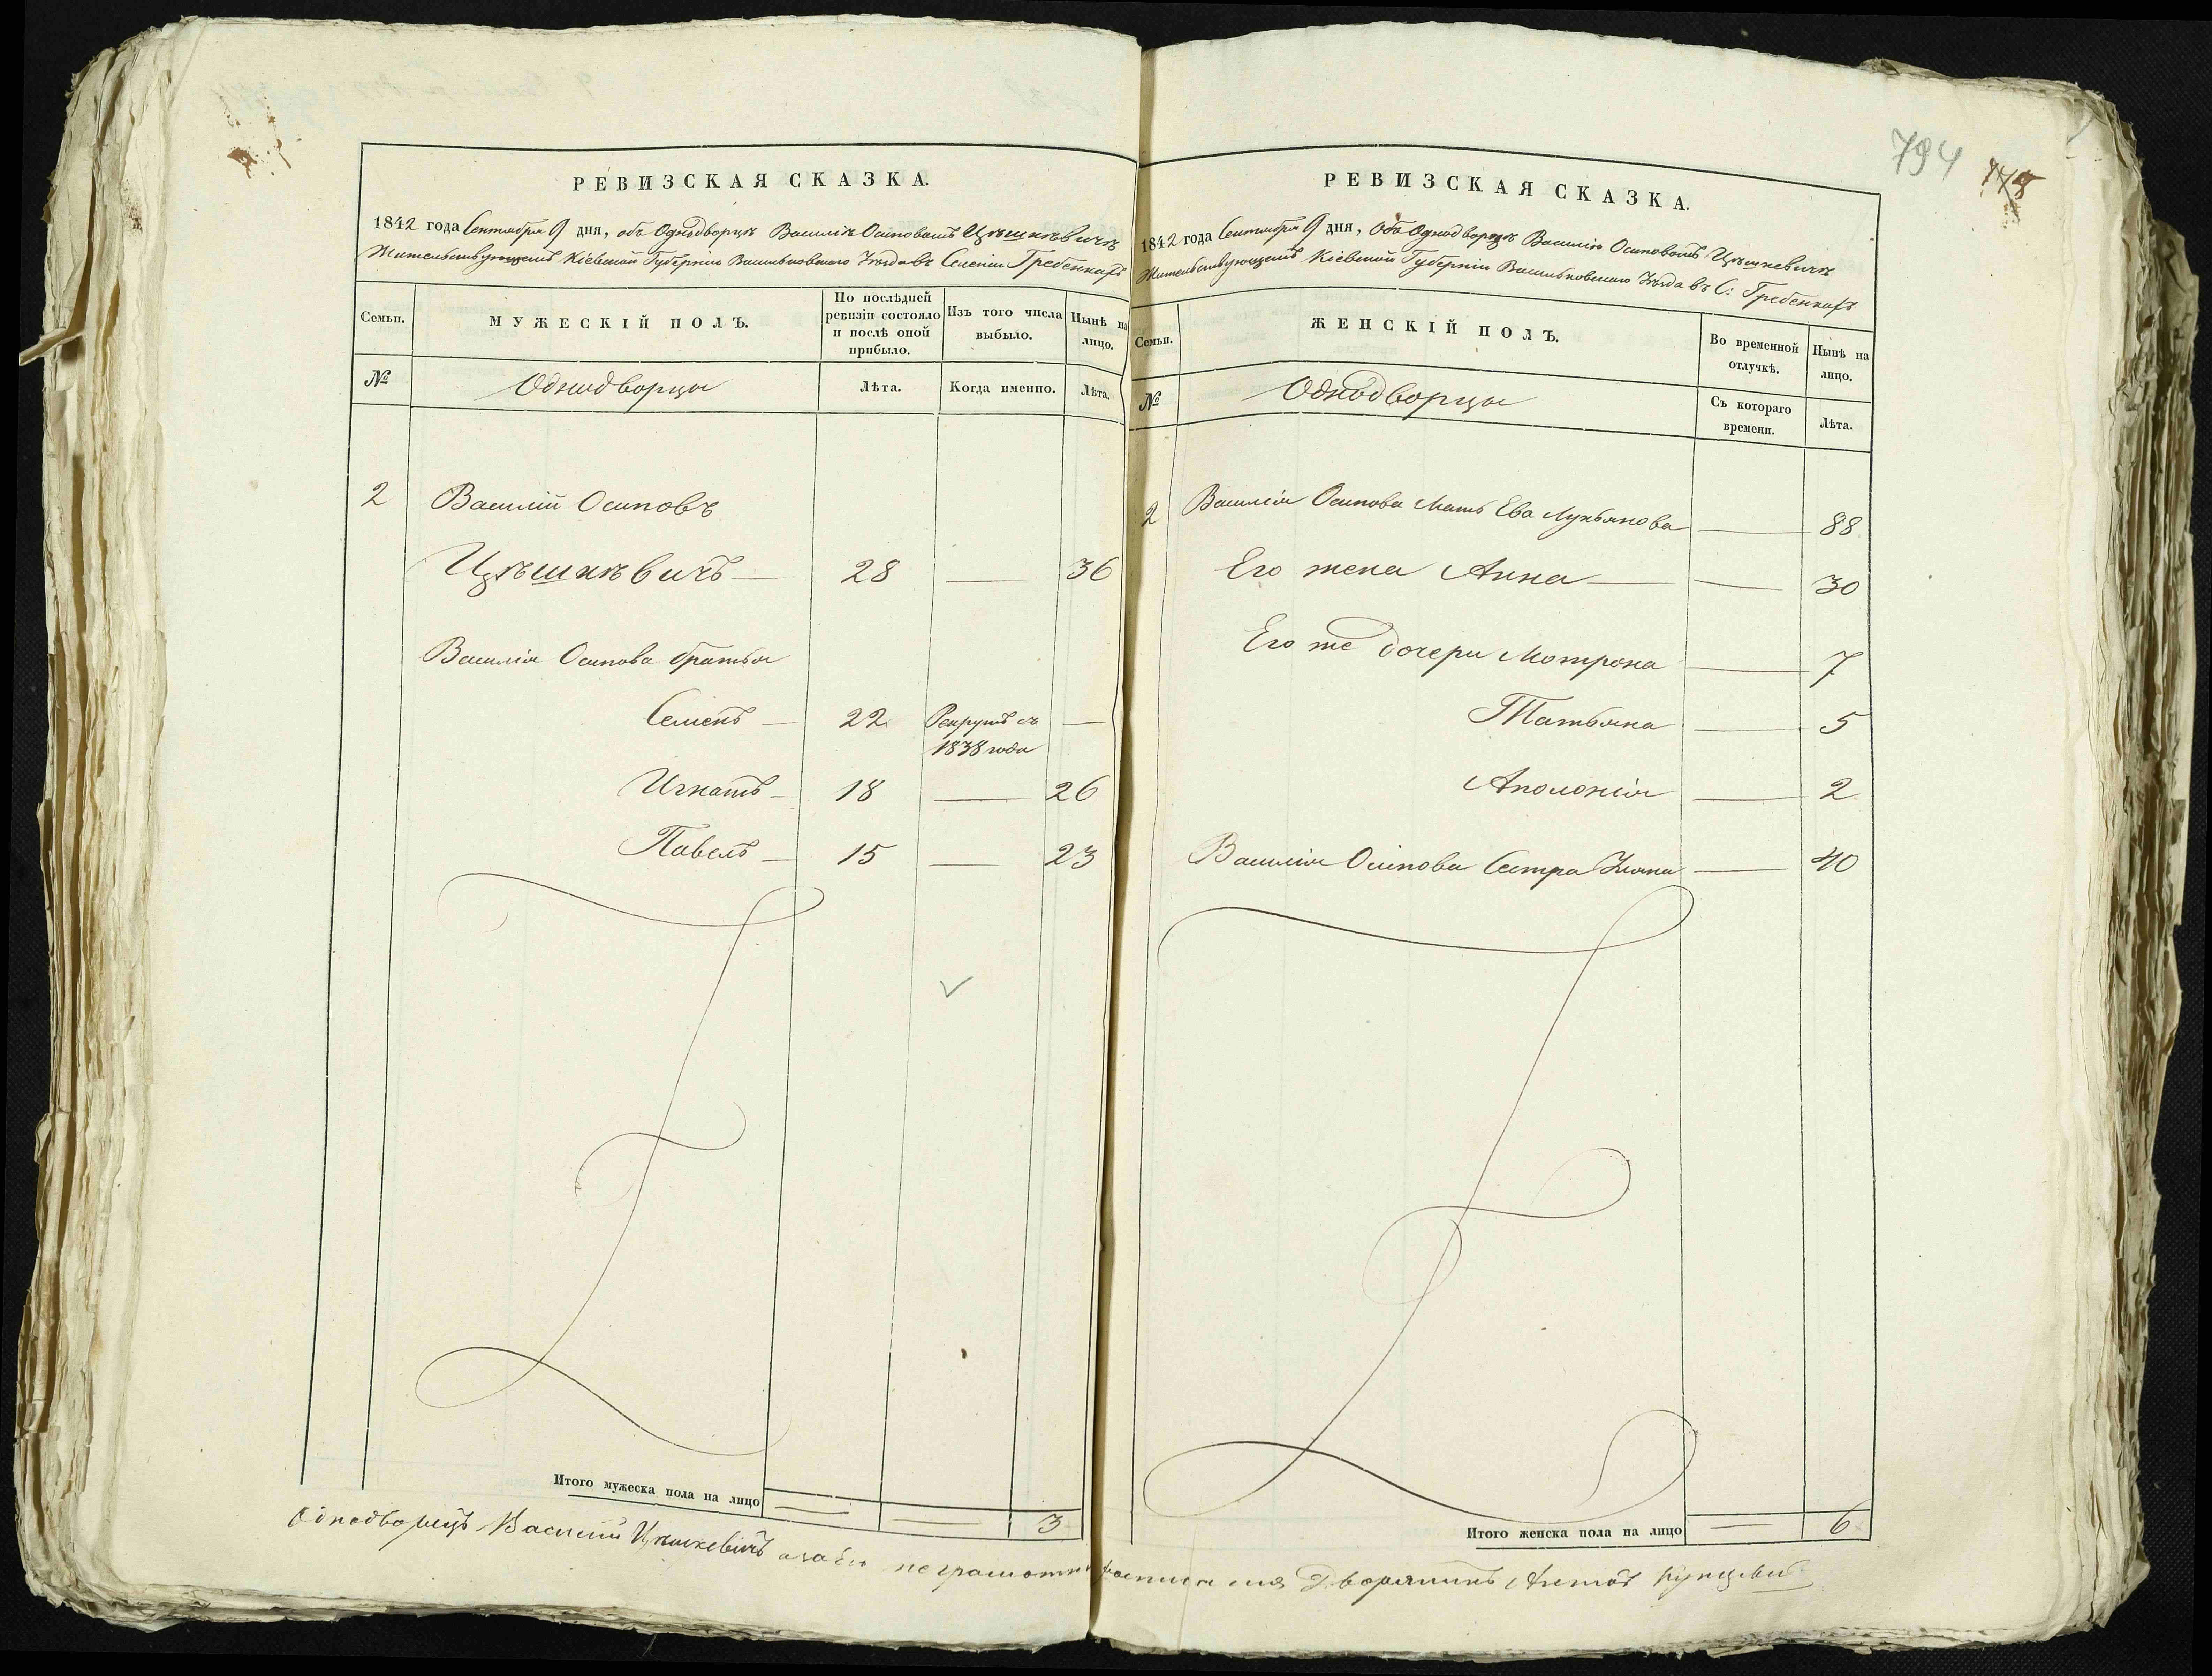 794
РЕВИЗСКАЯ СКАЗКА.
1842 года Сентября 9 дня, объ Однодворцѣ Василіѣ Осиповомъ Цѣшкѣвичѣ
Жительствующемъ Кіевской Губерніи Васильковскаго Уѣзда въ Селеніи Гребенкахъ
Семьи.
МУЖЕСКІЙ ПОЛЪ.
По послѣдней ревизіи состояло и послѣ оной прибыло.
Изъ того числа выбыло.
Нынѣ на лицо.
№
Однодворцы
Лѣта.
Когда именно.
Лѣта.
2 Василій Осиповъ
Цѣшкѣвичъ — 28 — 36
Василія Осипова братья
Семенъ — 22 Рекрутъ съ —
1838 года
Игнатъ — 18 — 26
Павелъ — 15 — 23
Итого мужеска пола на лицо — — 3
РЕВИЗСКАЯ СКАЗКА.
1842 года Сентября 9 дня, Объ Однодворцѣ Василію Осиповомъ Цѣшкевичѣ
Жительствующемъ Кіевской Губерніи Васильковскаго Уѣзда въ С: Гребенкахъ
Семьи.
ЖЕНСКІЙ ПОЛЪ.
Во временной отлучкѣ.
Нынѣ на лицо.
№
Однодворцы
Съ котораго времени.
Лѣта.
2 Василія Осипова Мать Ева Лукьянова — 88
Его жена Анна — — 30
Его же дочери Мотрона — 7
Татьяна — 5
Аполонія — 2
Василія Осипова Сестра — 40
Итого женска пола на лицо — 6
Однодворецъ Василій Цѣшкевичъ а за Его неграмотн росписался Дворянинъ Антонъ